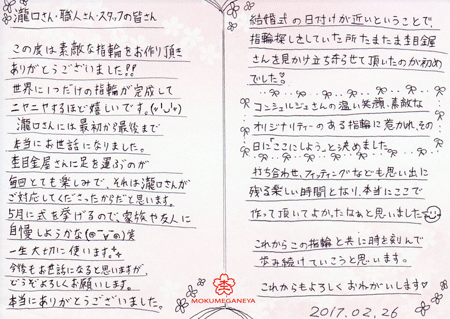 瀧口さん・職人さん・スタッフの皆さん
この度は素敵な指輪をお作り頂き
ありがとうございました!!
世界に1つだけの指輪が完成して
ニヤニヤするほど嬉しいです。(◡‿◡)
瀧口さんには最初から最後まで
本当にお世話になりました。
杢目金屋さんに足を運ぶのが
毎回とても楽しみで、それは瀧口さんが
ご対応してくださったからだと思います。
5月に式を挙げるので、家族や友人に
自慢しようかな(ฅ¯v¯ฅ)笑
一生大切に使います。
今後もお世話になると思いますが、
どうぞよろしくお願いします。
本当にありがとうございました。
結婚式の日付けが近いということで、
指輪探しをしていた所たまたま杢目金屋
さんを見かけ立ち寄らせて頂いたのが初め
でした。
コンシェルジュさんの温い笑顔、素敵な
オリジナリティーのある指輪に惹かれ、その
日に「ここにしよう。」と決めました。
打ち合わせ、フィッティングなども思い出に
残る楽しい時間となり、本当にここで
作って頂いてよかったなぁと思いました
これからこの指輪と共に時を刻んで
歩み続けていこうと思います。
これからもよろしくおねがいします♡
2017.02.26
MOKUMEGANEYA